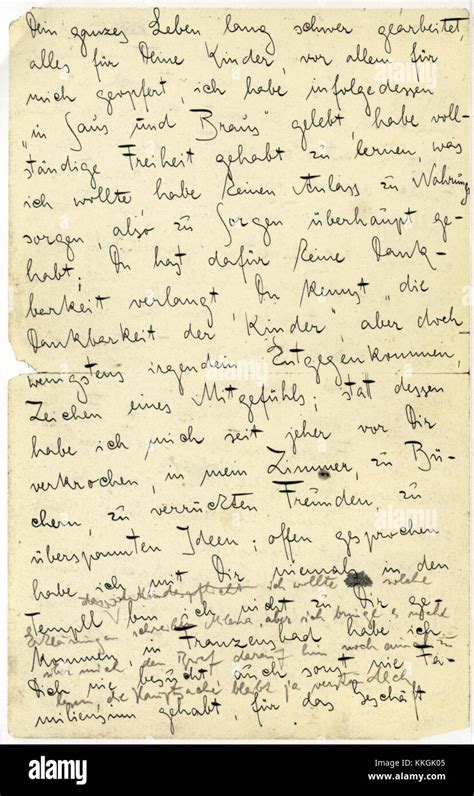 Dein ganzes Leben lang schwer gearbeitet,
alles für Deine Kinder, vor allem für
mich geopfert, ich habe infolgedessen
"in Saus und Braus" gelebt, habe voll-
ständige Freiheit gehabt zu lernen, was
ich wollte habe keinen Anlass zu Nahrungs
sorgen, also zu Sorgen überhaupt ge-
habt; Du hast dafür keine Dank-
barkeit verlangt, Du kennst "die
Dankbarkeit der Kinder", aber doch
wenigstens irgendein Entgegenkommen,
Zeichen eines Mitgefühls; statt dessen
habe ich mich seit jeher vor Dir
verkrochen, in mein Zimmer, zu Bü-
chern, zu verrückten Freunden, zu
überspannten Ideen; offen gesprochen
habe ich mit Dir niemals, in den
ich wollte solche
Tempel bin ich nicht zu Dir ge-
Erklärungen aber ich bringe es nicht
kommen, in Franzensbad habe ich
über mich den Brief darauf hin noch zu
Dich nie besucht, auch sonst nie Fa-
lesen, die Hauptsache bleibt ja verständlich
miliensinn gehabt, für das Geschäft
alamy
Image ID: KKGK05
www.alamy.com